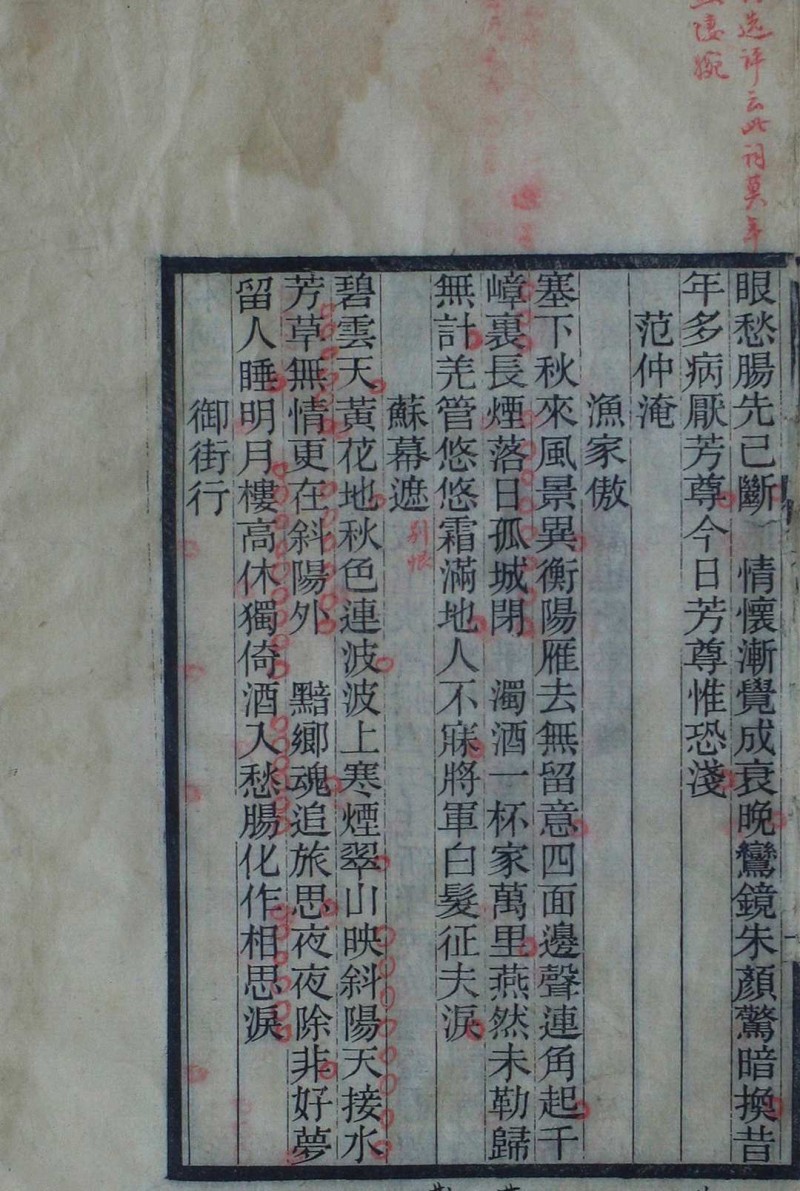 选评云此词莫年
凄婉
眼愁腸先已斷　情懷漸覺成衰晚鸞鏡朱顏驚暗換昔
年多病厭芳尊今日芳尊惟恐淺
范仲淹
漁家傲
塞下秋來風景異衡陽雁去無留意四面邊聲連角起千
嶂裏長煙落日孤城閉　濁酒一杯家萬里燕然未勒歸
無計羌管悠悠霜滿地人不寐將軍白髮征夫淚
蘇幕遮
别恨
碧雲天黃花地秋色連波波上寒煙翠山映斜陽天接水
芳草無情更在斜陽外　黯鄉魂追旅思夜夜除非好夢
留人睡明月樓高休獨倚酒入愁腸化作相思淚
御街行